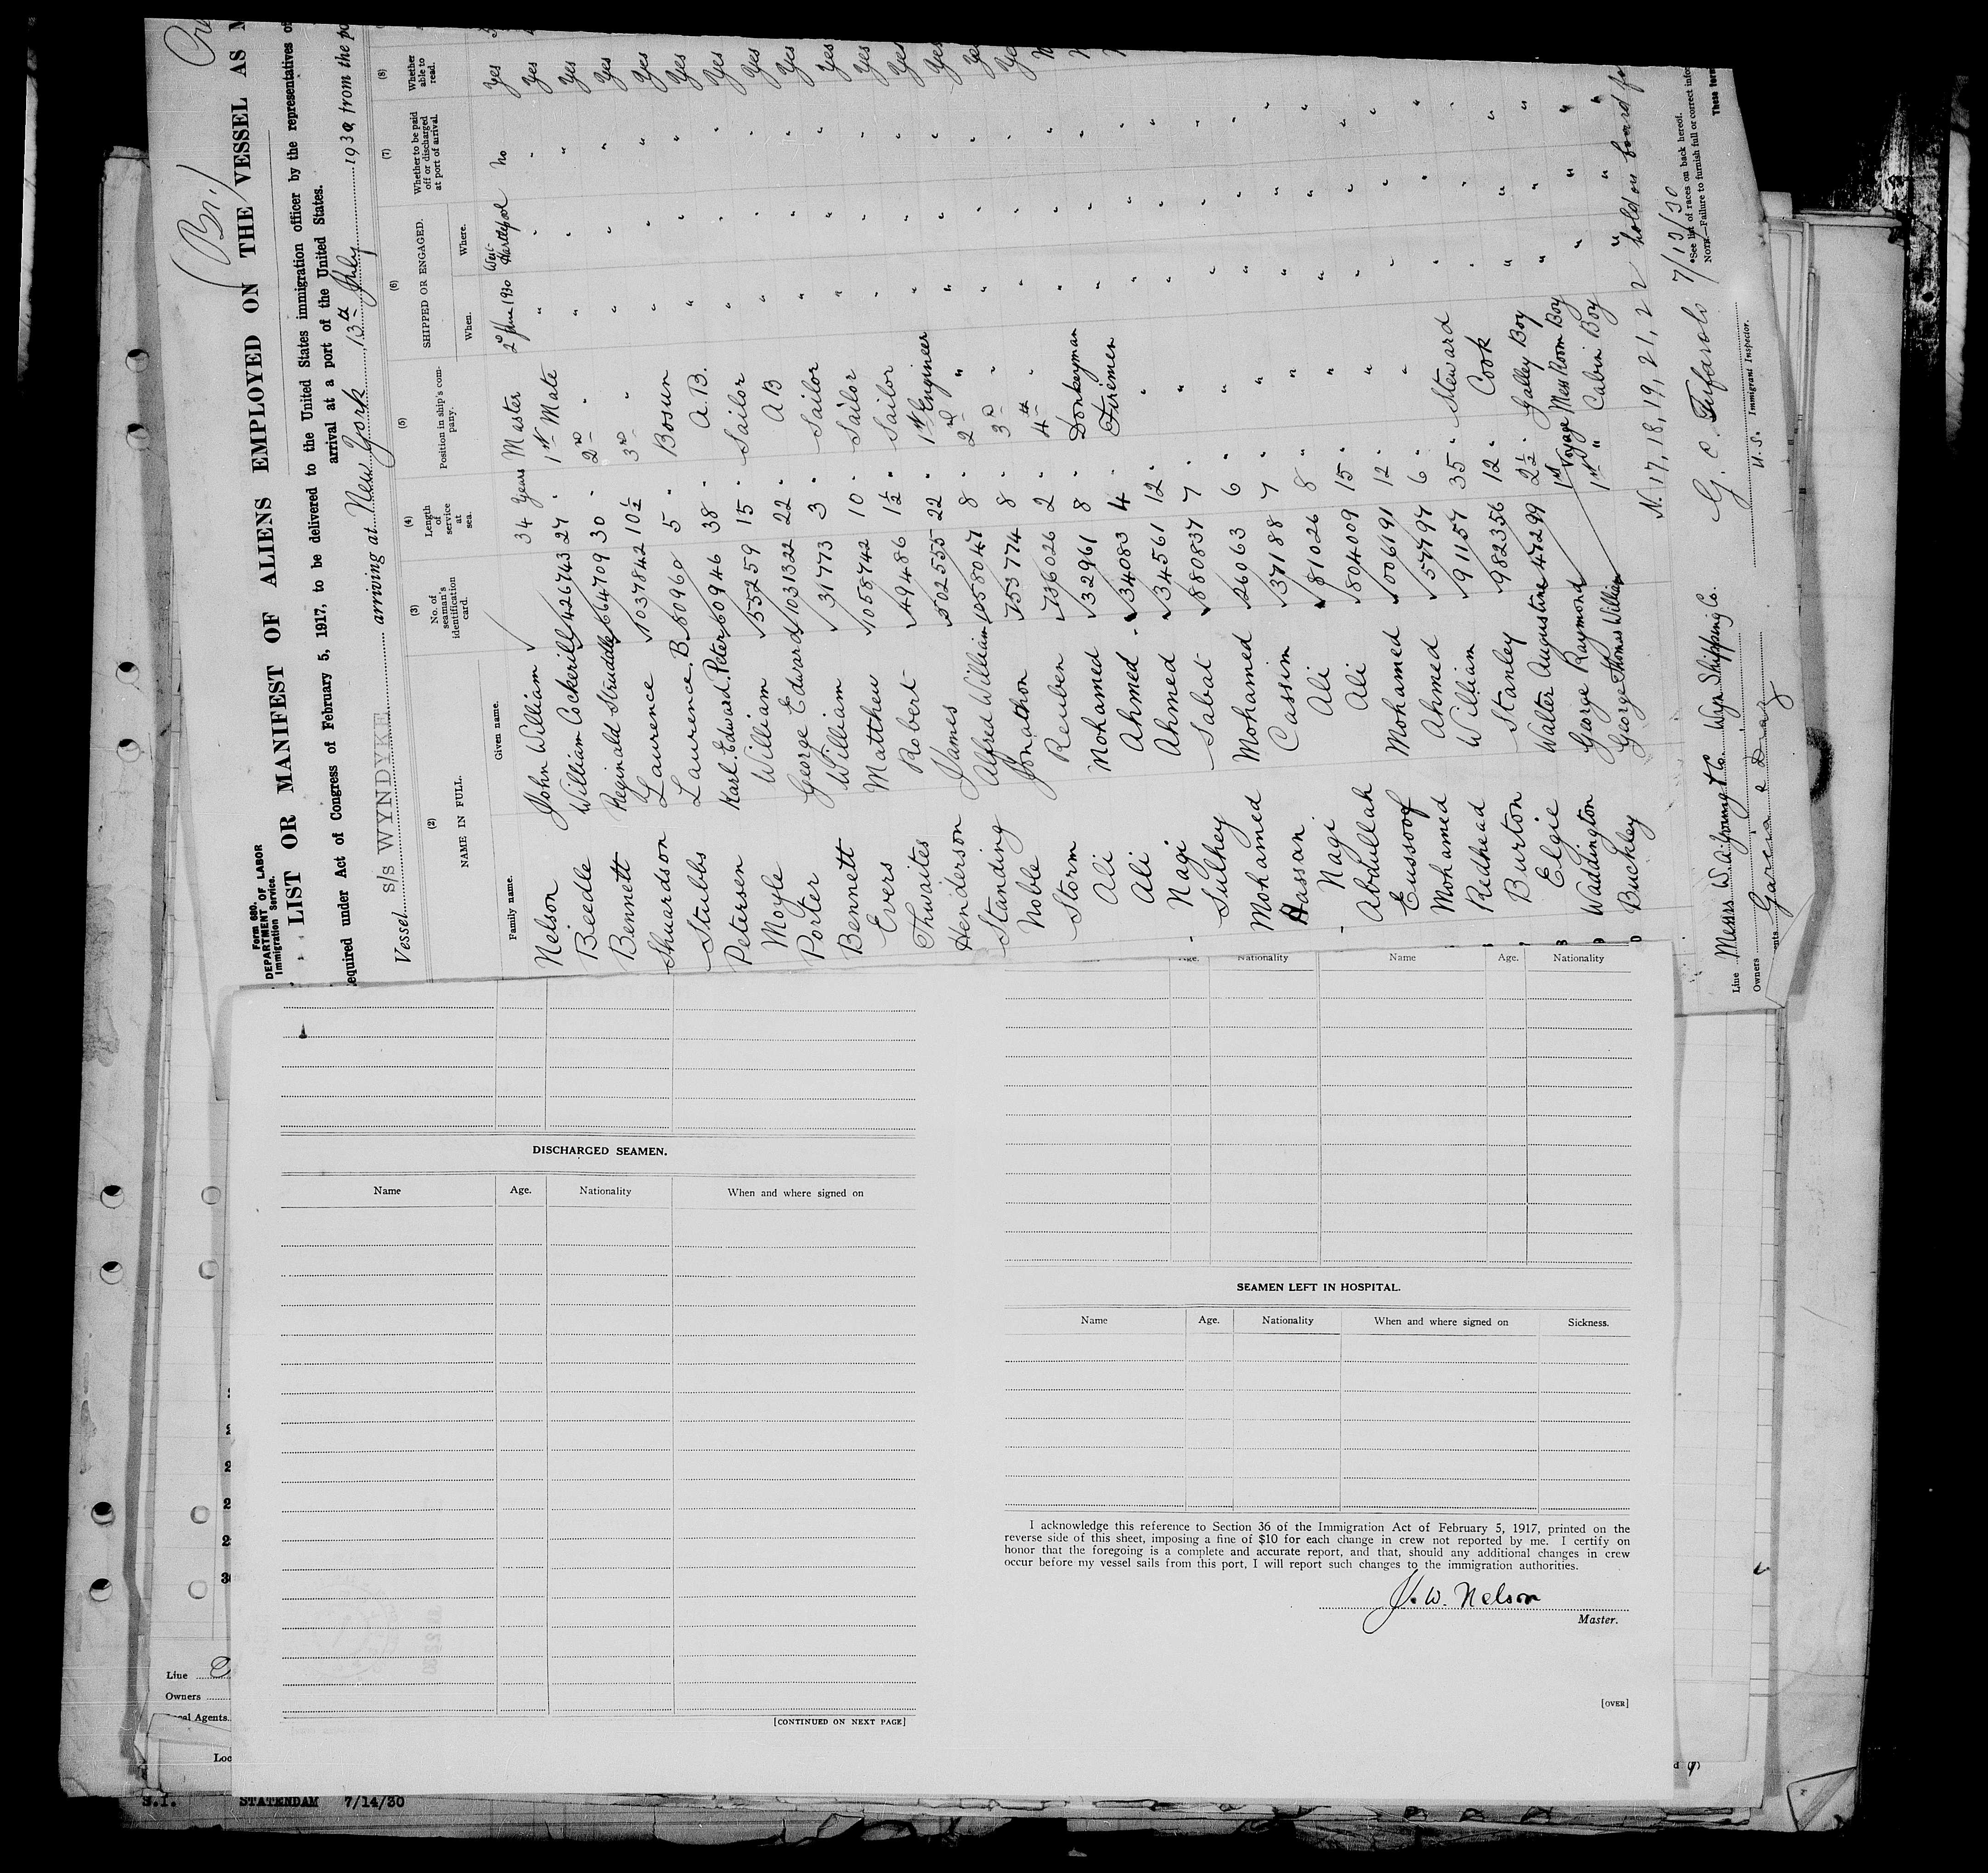 (Bri)
Form 680.
DEPARTMENT OF LABOR
Immigration Service.
LIST OR MANIFEST OF ALIENS EMPLOYED ON THE VESSEL AS
equired under Act of Congress of February 5, 1917, to be delivered to the United States immigration officer by the representatives
arrival at a port of the United States.
Vessel S/S WYNDYKE arriving at New York 13th July 1930, from the
(2) (3) (4) (5) (6) (7) (8)
NAME IN FULL. No. of seaman's identification card. Length of service at sea. Position in ship's company. SHIPPED OR ENGAGED. Whether to be paid off or discharged at port of arrival. Whether able to read.
Family name. Given name. When. Where.
Nelson John William 34 Years Master 2nd June 1930 West Hartlepool No Yes
Beedle William Cockerill 426743 27 " 1st Mate " " " Yes
Bennett Reginald Struddle 664709 30 " 2nd " " " " Yes
Shuardson Laurence 1037842 10½ 3rd " " " " Yes
Stubbs Laurence B. 80960 5 " Bosun " " " Yes
Petersen Karl Edward Peter 60946 38 " A.B. " " " Yes
Moyle William 55259 15 " Sailor " " " Yes
Porter George Edward 1031322 22 " AB " " " Yes
Bennett William 31773 3 " Sailor " " " Yes
Evers Matthew 1055742 10 " Sailor " " " Yes
Thwaites Robert 49486 1½ " Sailor " " " Yes
Henderson James 502555 22 " 1st Engineer " " " Yes
Standing Alfred William 1058047 8 " 2nd " " " " Yes
Noble Jonathon 753774 8 " 3rd " " " " Yes
Storm Reuben 736026 2 " 4th " " " " Yes
Ali Mohamed 32961 8 " Donkeyman " " "
Ali Ahmed 34083 4 " Firemen " " "
Nagi Ahmed 34561 12 " " " " "
Sulhey Sabat 88083 7 " " " " "
Mohamed Mohamed 26063 6 " " " " "
Hassan Cassim 37188 7 " " " " "
Nagi Ali 81026 8 " " " " "
Abdullah Ali 804009 15 " " " " "
Eussoof Mohamed 1006191 12 " " " " "
Mohamed Ahmed 57797 6 " " " " "
Redhead William 91157 35 " Steward " " "
Burton Stanley 982356 12 " Cook " " "
Elgie Walter Augustine 47299 2½ " Galley Boy " " "
Waddington George Raymond 1st Voyage Mess Room Boy " " "
Buckley George Thomas William 1st " Cabin Boy " " "
N. 17, 18, 19, 21, 22 hold on board
G. C. 7/13/30
U.S. Immigrant Inspector.
*See list of races on back hereof.
NOTE—Failure to furnish full or correct
Line Messrs W. A. Young & Co. Wyn Shipping Co.
Owners
Garcia & Diaz
Age. Nationality Name Age. Nationality
DISCHARGED SEAMEN.
Name Age. Nationality When and where signed on
SEAMEN LEFT IN HOSPITAL.
Name Age. Nationality When and where signed on Sickness.
I acknowledge this reference to Section 36 of the Immigration Act of February 5, 1917, printed on the
reverse side of this sheet, imposing a fine of $10 for each change in crew not reported by me. I certify on
honor that the foregoing is a complete and accurate report, and that, should any additional changes in crew
occur before my vessel sails from this port, I will report such changes to the immigration authorities.
J. W. Nelson
Master.
[OVER]
[CONTINUED ON NEXT PAGE]
Line
Owners
Agents
Loc
S.I. STATENDAM 7/14/30